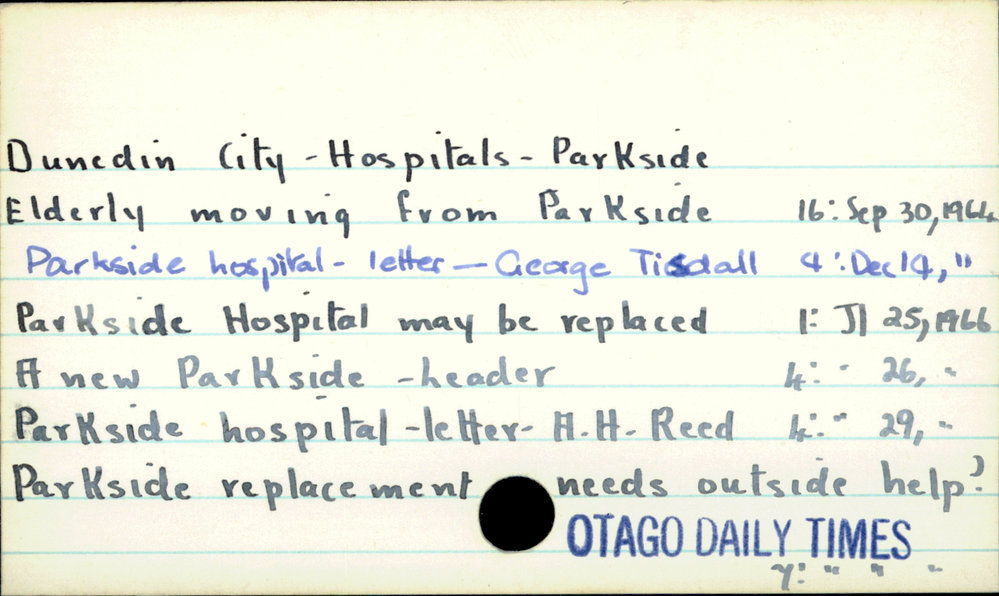 Dunedin City - Hospitals - Parkside
Elderly moving from Parkside 16: Sep 30, 1964
Parkside hospital - letter — George Tisdall 4: Dec 14, "
Parkside Hospital may be replaced 1: Jl 25, 1966
A new Parkside - header 4: " 26, "
Parkside hospital - letter - A.H. Reed 4: " 29, "
Parkside replacement needs outside help?
OTAGO DAILY TIMES
7: " " "